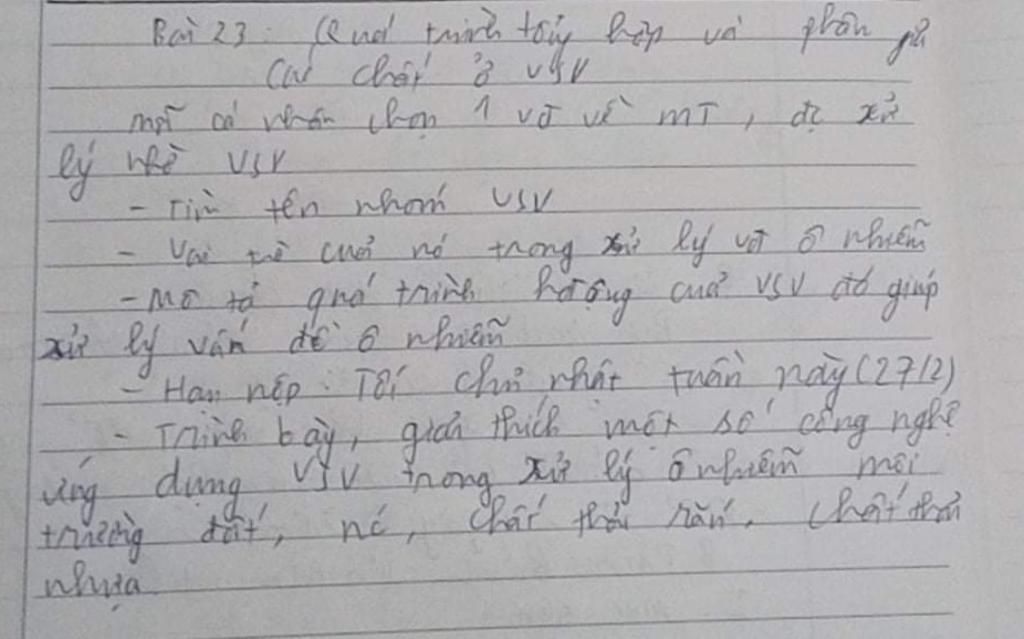 Bài 23: Quá trình tổng hợp và phân giải
các chất ở VSV
mỗi cá nhân chọn 1 vđ về MT, đc xử
lý nhờ VSV
- Tìm tên nhóm VSV
- Vai trò của nó trong xử lý vđ ô nhiễm
- Mô tả quá trình hđộng của VSV đó giúp
xử lý vấn đề ô nhiễm
- Hạn nộp: Tối chủ nhật tuần này (27/2)
- Trình bày, giải thích một số công nghệ
ứng dụng VSV trong xử lý ô nhiễm môi
trường đất, nc, chất thải rắn, chất thải
nhựa